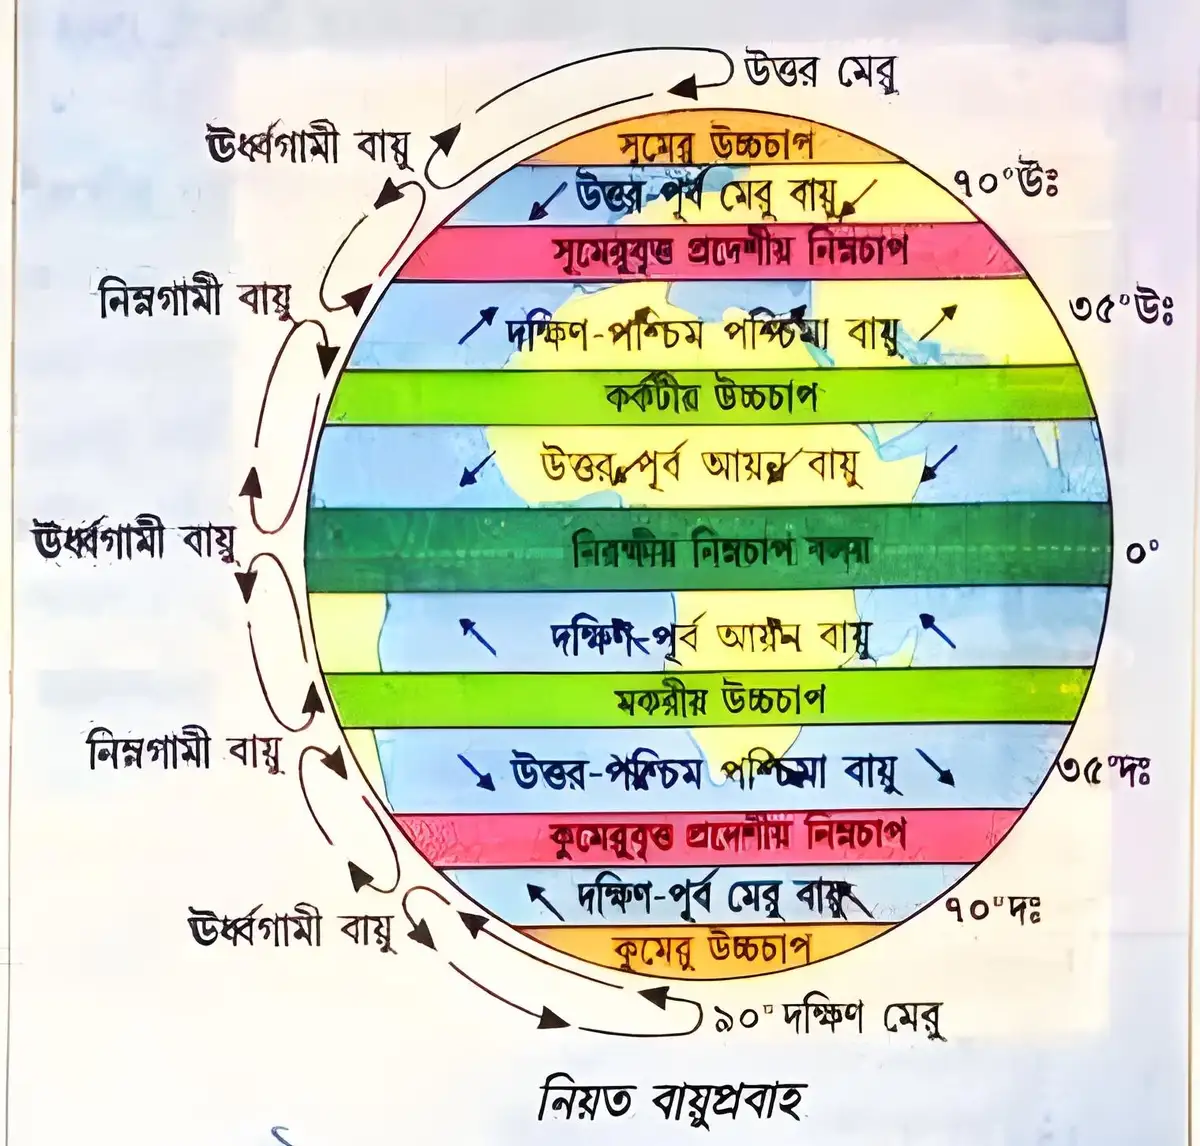 উত্তর মেরু
ঊর্ধ্বগামী বায়ু
সুমেরু উচ্চচাপ
৭০°উঃ
উত্তর-পূর্ব মেরু বায়ু
সুমেরুবৃত্ত প্রদেশীয় নিম্নচাপ
নিম্নগামী বায়ু
৩৫°উঃ
দক্ষিণ-পশ্চিম পশ্চিমা বায়ু
কর্কটীয় উচ্চচাপ
উত্তর-পূর্ব আয়ন বায়ু
ঊর্ধ্বগামী বায়ু
নিরক্ষীয় নিম্নচাপ বলয়
০°
দক্ষিণ-পূর্ব আয়ন বায়ু
মকরীয় উচ্চচাপ
নিম্নগামী বায়ু
উত্তর-পশ্চিম পশ্চিমা বায়ু
৩৫°দঃ
কুমেরুবৃত্ত প্রদেশীয় নিম্নচাপ
দক্ষিণ-পূর্ব মেরু বায়ু
৭০°দঃ
ঊর্ধ্বগামী বায়ু
কুমেরু উচ্চচাপ
৯০° দক্ষিণ মেরু
নিয়ত বায়ুপ্রবাহ